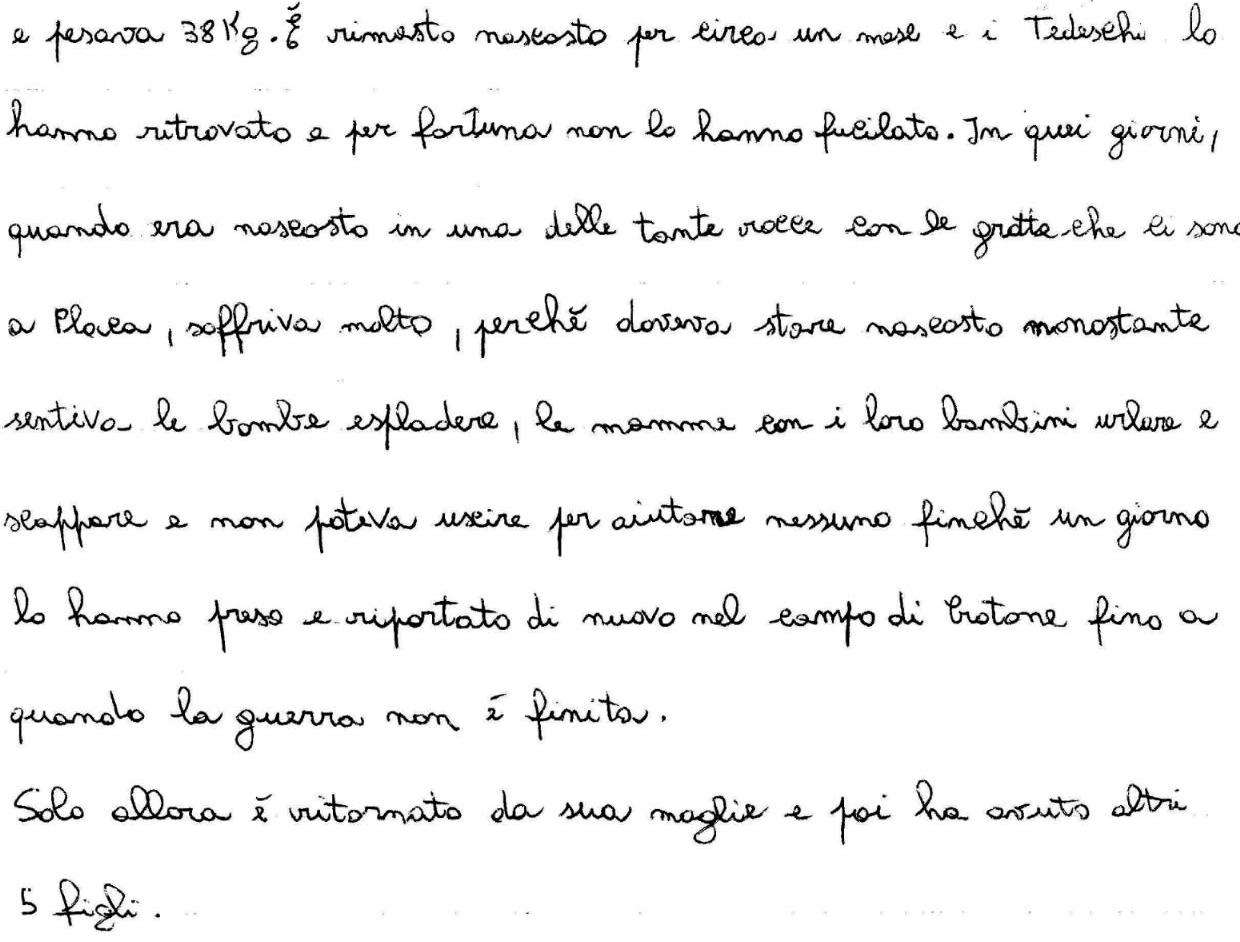 e pesava 38Kg. È rimasto nascosto per circa un mese e i Tedeschi lo
hanno ritrovato e per fortuna non lo hanno fucilato. In quei giorni,
quando era nascosto in una delle tante rocce con le grotte che ci sono
a Placa, soffriva molto, perchè doveva stare nascosto nonostante
sentiva le bombe espladere, le mamme con i loro bambini urlare e
scappare e non poteva uscire per aiutare nessuno finchè un giorno
lo hanno preso e riportato di nuovo nel campo di Crotone fino a
quando la guerra non è finita.
Solo allora è ritornato da sua moglie e poi ha avuto altri
5 figli.